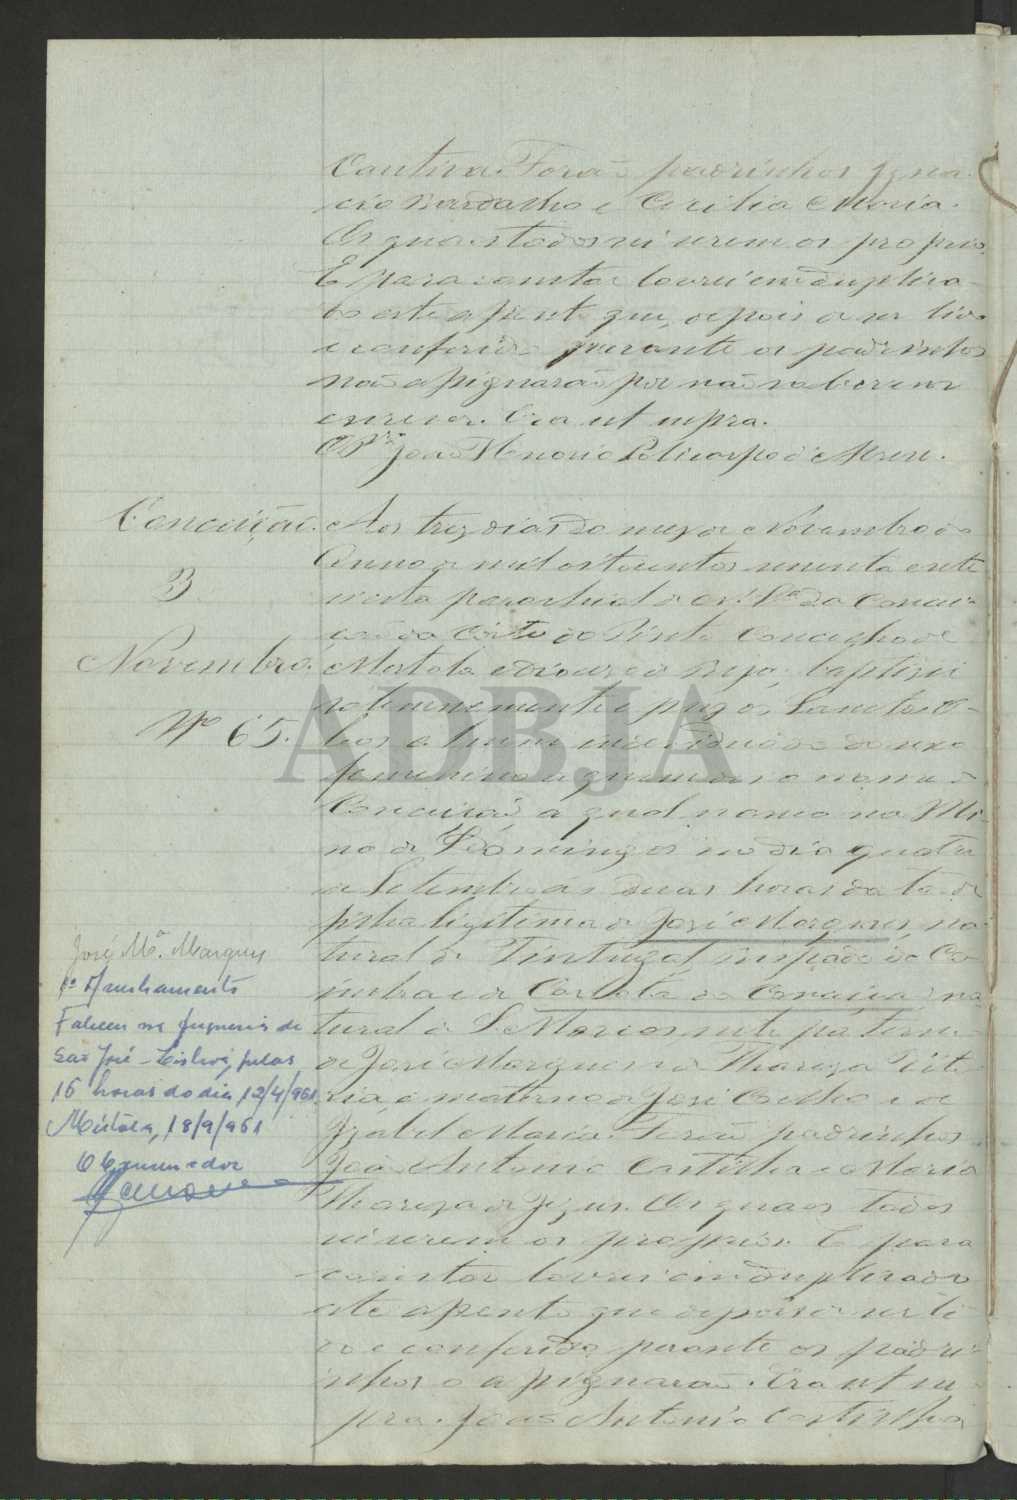 Cantiva. Forão padrinhos Igna-
cio Bardalho e Cecilia Maria.
Os quaes todos sei serem os proprios.
E para constar lavrei em duplica-
do este assento que, depois de ser lido
e conferido perante os padrinhos
não assignarão por não saberem
escrever. Era ut supra.
O Pr. João Honorio Policarpo de
Conceição.
3
Novembro.
Nº 65.
Aos trez dias do mez de Novembro do
Anno de mil oitocentos noventa e nesta
parochial de N. Srª da Concei-
ção da Côrte do Pinto Concelho de
Mertola e Diocese de Beja, baptisei
solemnemente e puz os Sanctos O-
leos a hum individuo do sexo
femenino a quem dei o nome de
Conceição a qual nasceo na Mi-
na de S. Domingos no dia quatro
de Setembro ás duas horas da tarde
filha ligitima de José Marques, na-
tural de Tintugal, Bispado de Co-
imbra e de Carlota da Conceição na-
tural de S. Marcos, neta paterna
de José Marques e Thareza
e materna de José Coelho e de
Izabel Maria. Forão padrinhos
João Antonio Castilho e Maria
Thareza de Jezus. Os quaes todos
sei serem os proprios. E para
constar lavrei em duplicado
este assento que depois de ser li-
do e conferido perante os padri-
nhos o assignarão. Era ut su-
pra. João Antonio Castilho
José Mª. Marques
1º Averbamento
Faleceu na freguesia de
São José - Lisboa, pelas
16 horas do dia 12/4/961.
Mértola, 18/9/961
O Conservador
ADBJA